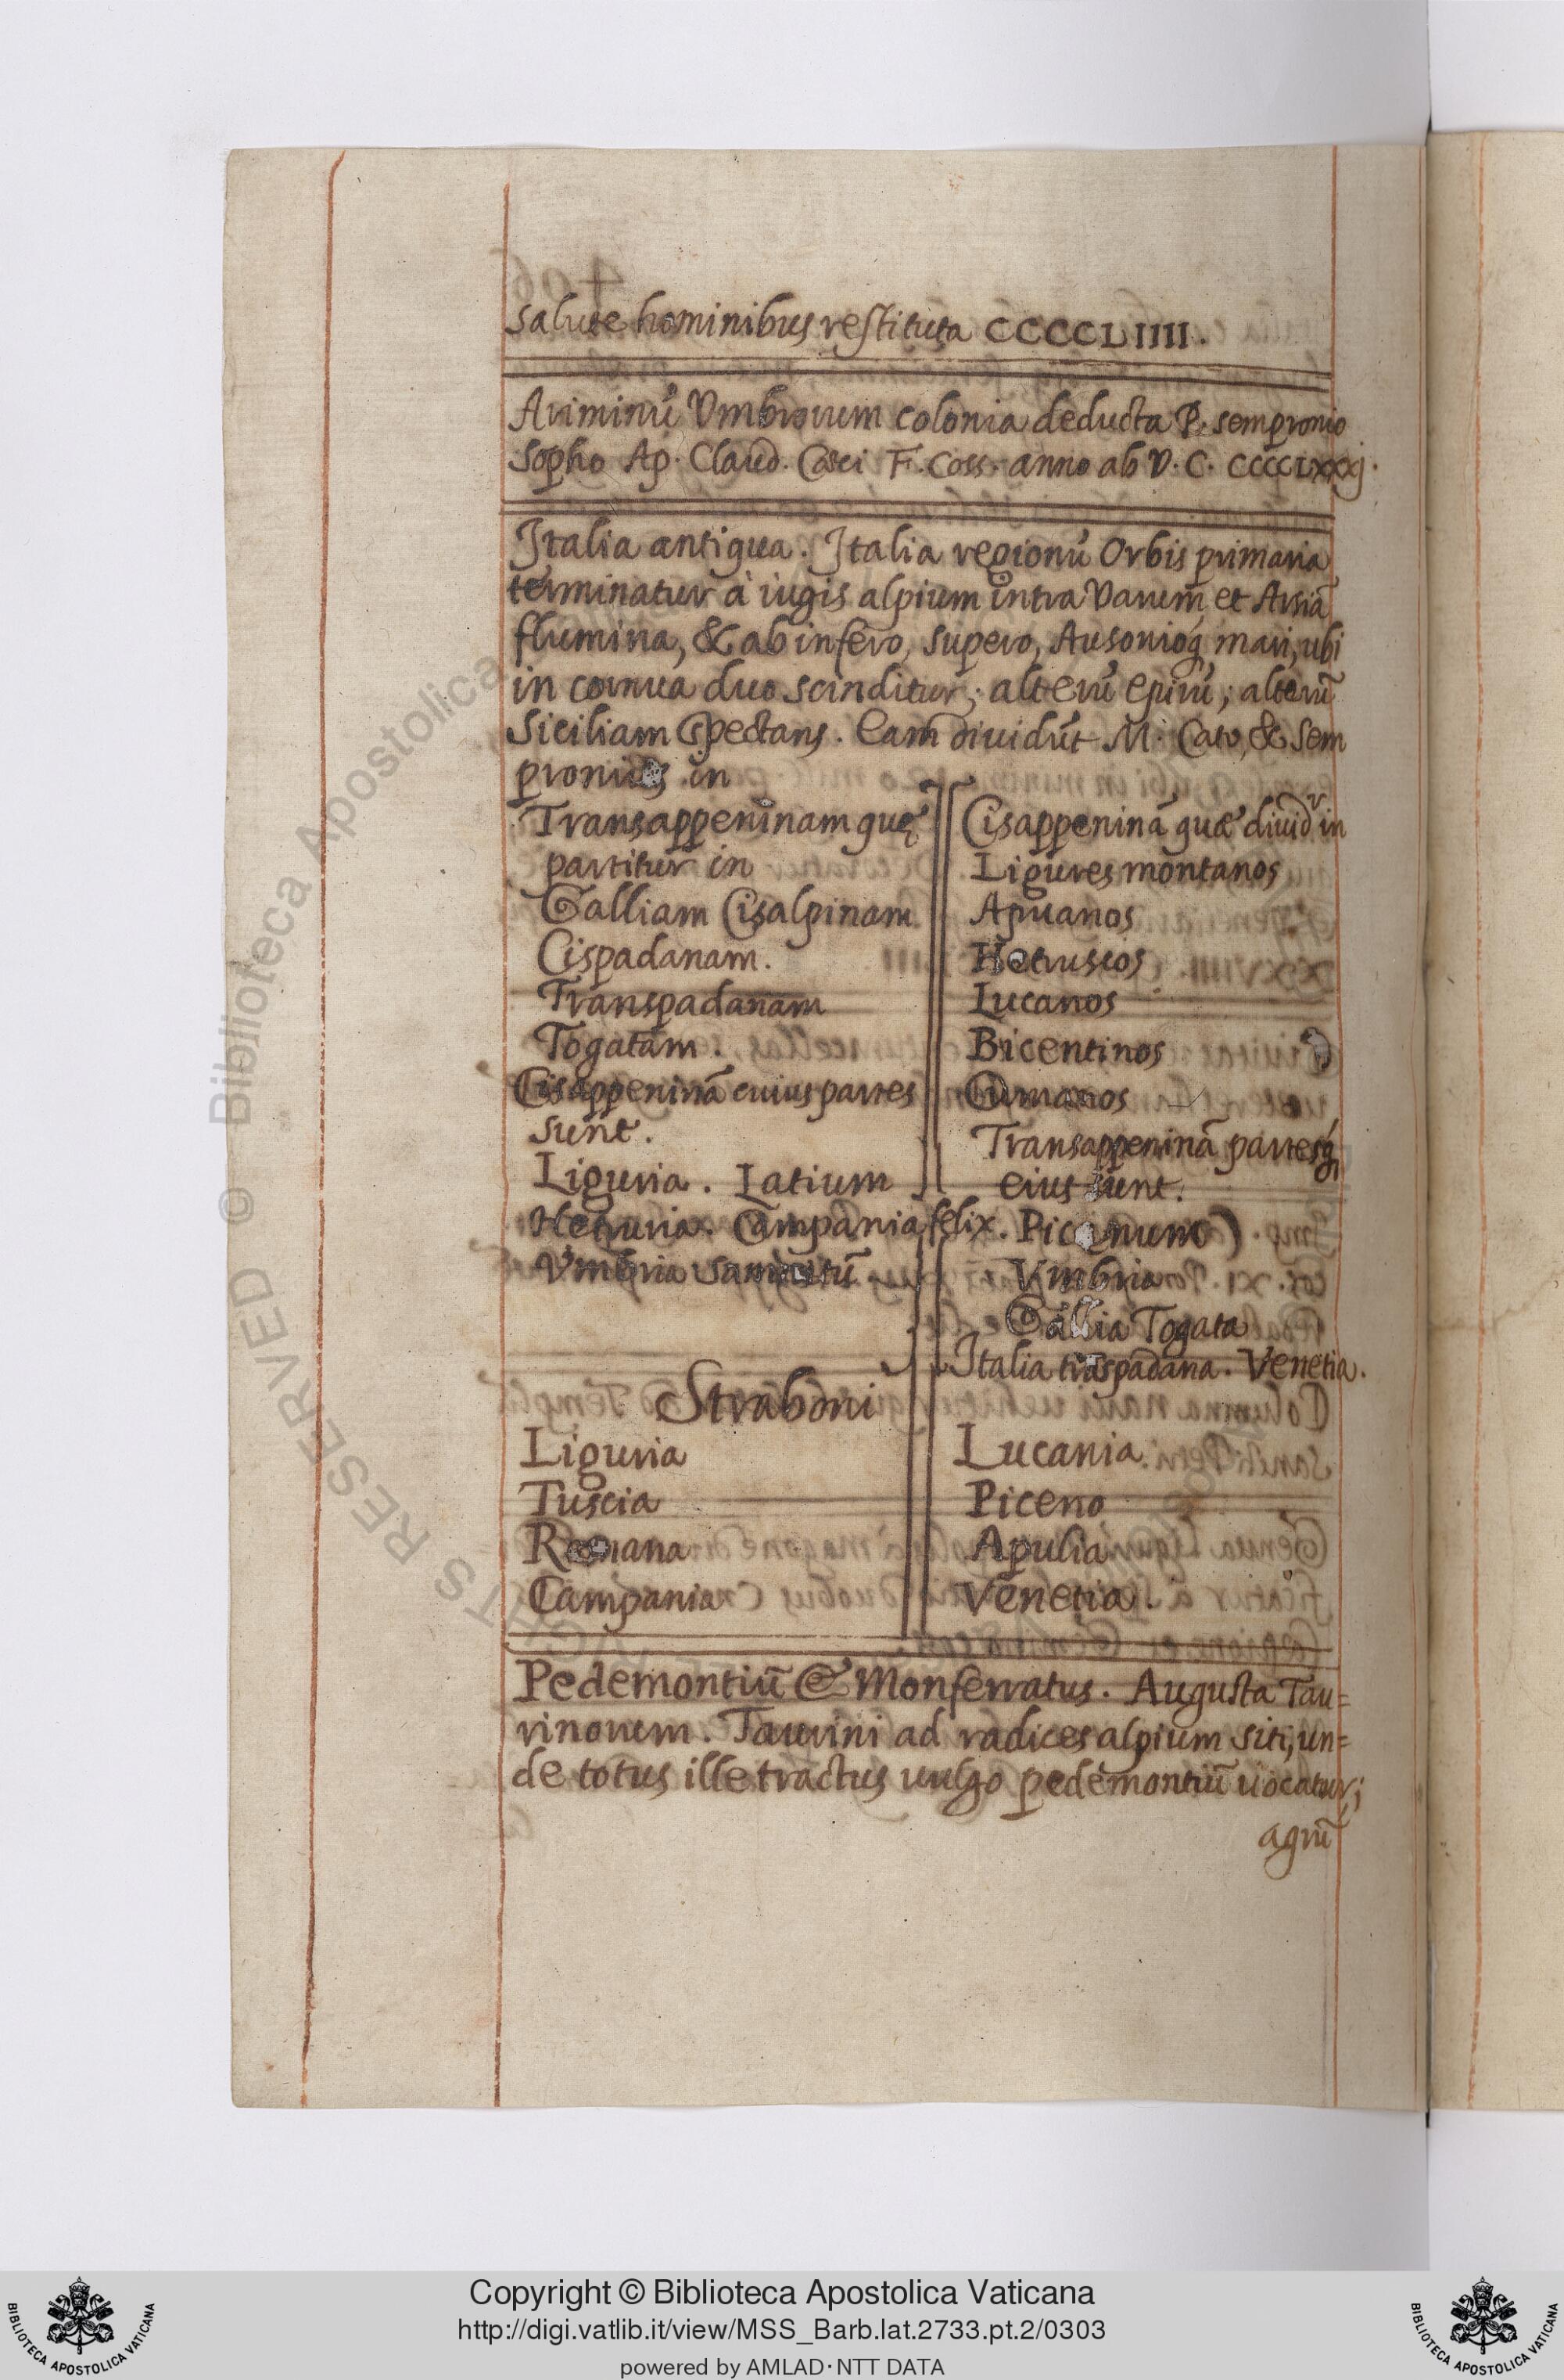 salute hominibus restituta CCCCLIIII.
Ariminū Vmbrorum colonia deducta P. sempronio
Sopho Ap. Claud. Caeci F. Coss. anno ab V. C. CCCCLXXXj.
Italia antiqua. Italia regionū Orbis primaria
terminatur à iugis alpium intra Varum et Arsiā
flumina, & ab infero, supero, Ausonioq́ mari, ubi
in cornua duo scinditur; alterū epirū; alterū
Siciliam spectans. Eam diuidūt M. Cato, & Sem
pronius in
Transappeninam quę
partitur in
Galliam Cisalpinam
Cispadanam.
Transpadanam
Togatam.
Cisappeninā cuius partes
sunt.
Liguria. Latium
Hetruria. Campania felix.
Vmbria Samnitū
Cisappeninā quae diuidr in
Ligures montanos
Apuanos
Hetruscos
Lucanos
Bicentinos
Cumanos
Transappeninā partesq́
eius sunt.
Picenum
Vmbria
Gallia Togata
Italia trāspadana. Venetia.
Straboni
Liguria
Tuscia
Romana
Campania
Lucania
Piceno
Apulia
Venetia.
Pedemontiū & Monferratus. Augusta Tau=
rinorum. Taurini ad radices alpium siti, un=
de totus ille tractus vulgo pedemontiū uocatur;
agrū
© Biblioteca Apostolica
RIGHTS RESERVED
Copyright © Biblioteca Apostolica Vaticana
http://digi.vatlib.it/view/MSS_Barb.lat.2733.pt.2/0303
powered by AMLAD·NTT DATA
BIBLIOTECA APOSTOLICA VATICANA
BIBLIOTECA APOSTOLICA VATICANA